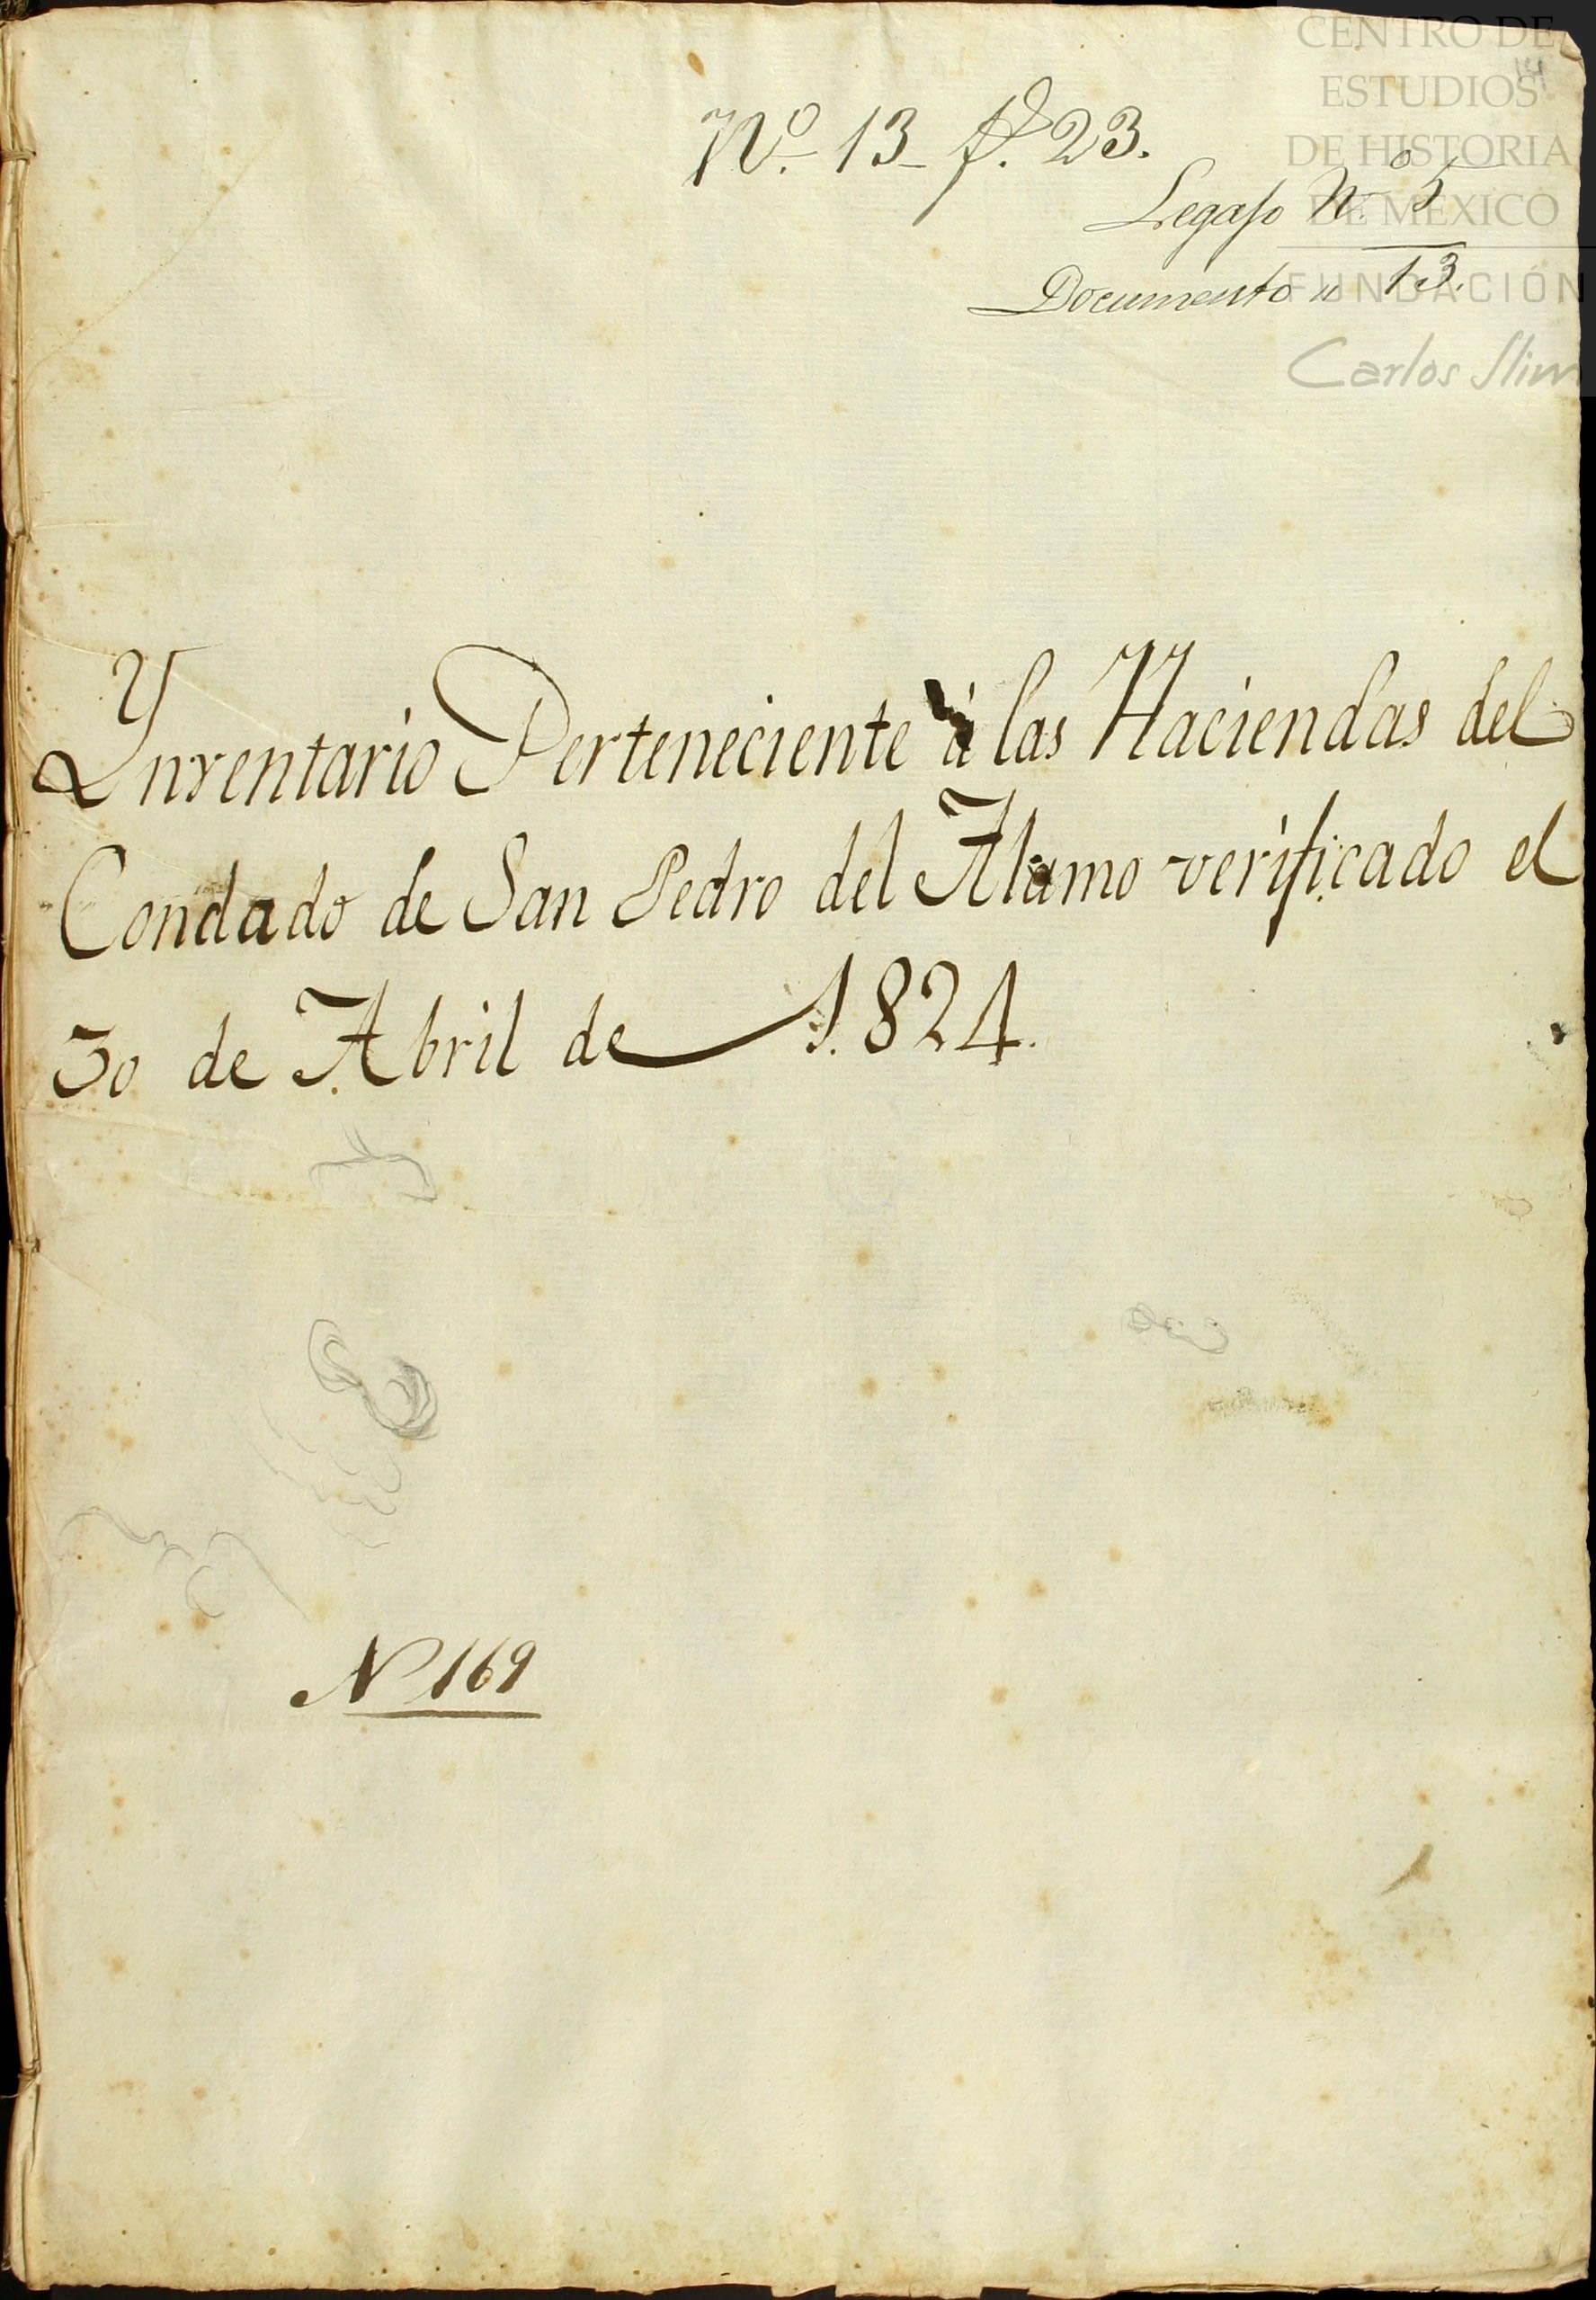 CENTRO DE
ESTUDIOS
DE HISTORIA
DE MÉXICO
FUNDACIÓN
Carlos Slim
Nº. 13 fº. 23.
Legajo N.º 5
Documento " 13.
Ynventario Perteneciente á las Haciendas del
Condado de San Pedro del Alamo verificado el
30 de Abril de 1.824.
N 169